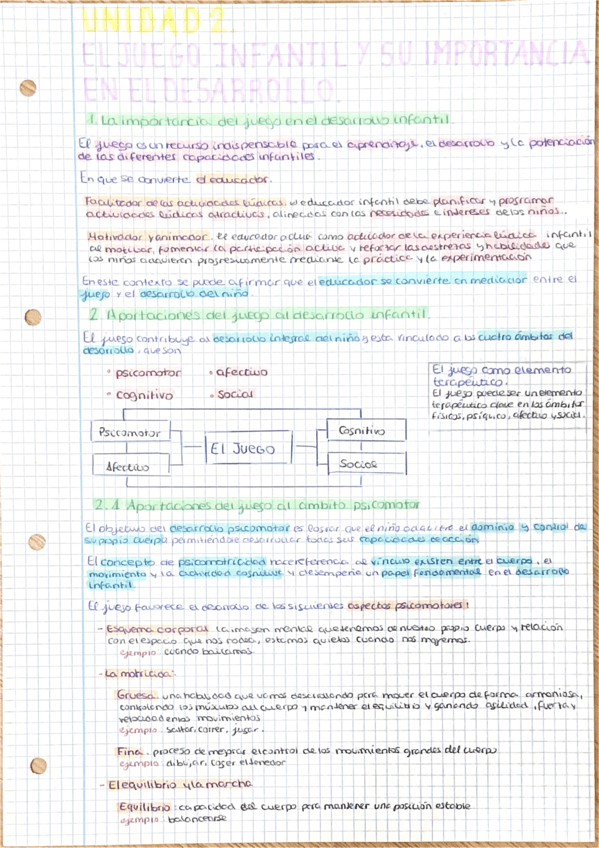 UNIDAD 2.
EL JUEGO INFANTIL Y SU IMPORTANCIA
EN EL DESARROLLO.
1. La importancia del juego en el desarrollo infantil.
El juego es un recurso indispensable para el aprendizaje, el desarrollo y la potenciación
de las diferentes capacidades infantiles.
En que se convierte el educador.
Facilitador de las actividades lúdicas. el educador infantil debe planificar y programar
actividades lúdicas atractivas, alineadas con las necesidades e intereses de los niños.
Motivador y animador. el educador actua como activador de la experiencia lúdica infantil
al motivar, fomentar la participación activa y reforzar las destrezas y habilidades que
los niños adquieren progresivamente mediante la práctica y la experimentación
En este contexto se puede afirmar que el educador se convierte en mediador entre el
juego y el desarrollo del niño.
2. Aportaciones del juego al desarrollo infantil.
El juego contribuye al desarrollo integral del niño y esta vinculado a los cuatro ámbitos del
desarrollo, que son
• psicomotor • afectivo
• cognitivo • social
El juego como elemento
terapeutico.
El juego puede ser un elemento
terapéutico clave en los ámbitos
físicos, psíquico, afectivo y social.
Psicomotor
Afectivo
El JUEGO
Cognitivo
Social
2.1 Aportaciones del juego al ámbito psicomotor
El objetivo del desarrollo psicomotor es lograr que el niño adquiere el dominio y control de
su propio cuerpo permitiéndole desarrollar todas sus capacidades de acción
El concepto de psicomotricidad hace referencia al vínculo existen entre el cuerpo, el
movimiento y la actividad cognitiva y desempeña un papel fundamental en el desarrollo
infantil.
El juego favorece el desarrollo de los siguientes aspectos psicomotores:
- Esquema corporal la imagen mental que tenemos de nuestro propio cuerpo y relación
con el espacio que nos rodea, estamos quietos cuando nos movemos.
ejemplo: cuando bailamos
- La motricidad:
Gruesa. una habilidad que vamos desarrollando para mover el cuerpo de forma armoniosa,
controlando los músculos del cuerpo y mantener el equilibrio y ganando agilidad, fuerza y
velocidad en los movimientos
ejemplo: saltar, correr, jugar.
Fina. proceso de mejorar el control de los movimientos grandes del cuerpo
ejemplo: dibujar, coger el tenedor
- El equilibrio y la marcha
Equilibrio: capacidad del cuerpo para mantener una posición estable
ejemplo: balancearse